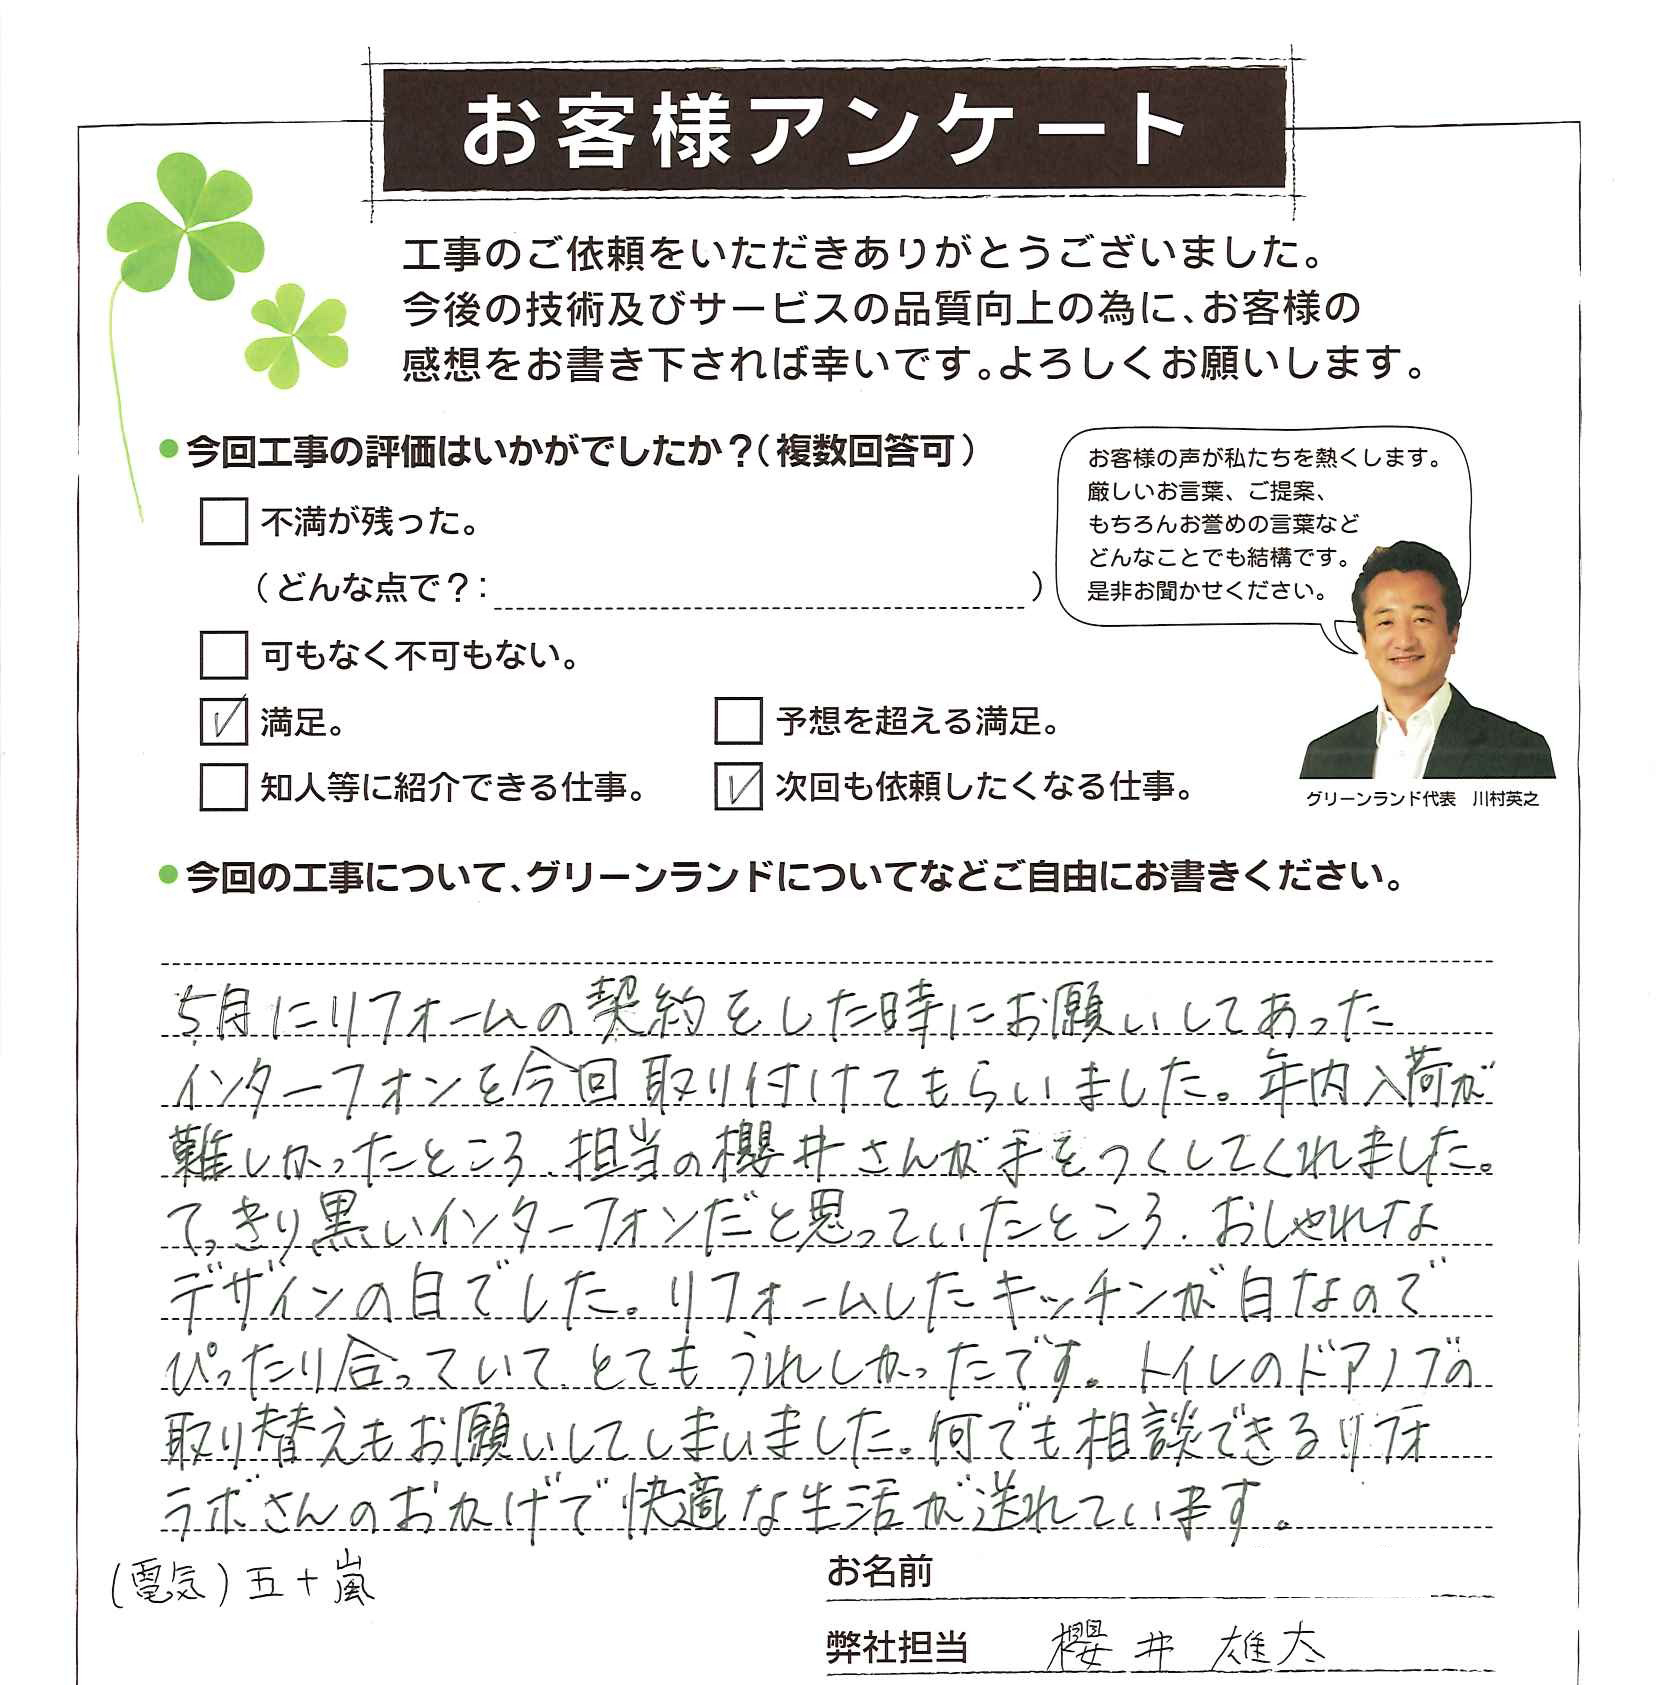 お客様アンケート
工事のご依頼をいただきありがとうございました。
今後の技術及びサービスの品質向上の為に、お客様の
感想をお書き下されば幸いです。よろしくお願いします。
●今回工事の評価はいかがでしたか?(複数回答可)
不満が残った。
(どんな点で?: )
可もなく不可もない。
満足。
予想を超える満足。
知人等に紹介できる仕事。
次回も依頼したくなる仕事。
お客様の声が私たちを熱くします。
厳しいお言葉、ご提案、
もちろんお誉めの言葉など
どんなことでも結構です。
是非お聞かせください。
グリーンランド代表 川村英之
●今回の工事について、グリーンランドについてなどご自由にお書きください。
5月にリフォームの契約をした時にお願いしてあった
インターフォンを今回取り付けてもらいました。年内入荷が
難しかったところ、担当の櫻井さんが手をつくしてくれました。
てっきり黒いインターフォンだと思っていたところ、おしゃれな
デザインの白でした。リフォームしたキッチンが白なので
ぴったり合っていて、とてもうれしかったです。トイレのドアノブの
取り替えもお願いしてしまいました。何でも相談できるリフォ
ラボさんのおかげで快適な生活が送れています。
(電気)五十嵐
お名前
弊社担当 櫻井 雄太